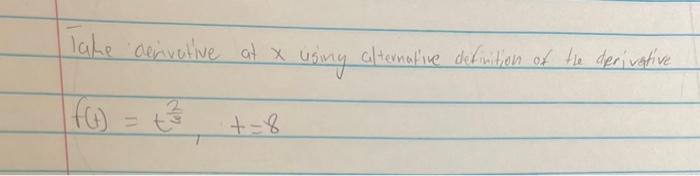 Take derivative at x using alternative definition of the derivative
f(t) = t^(2/3), t=8